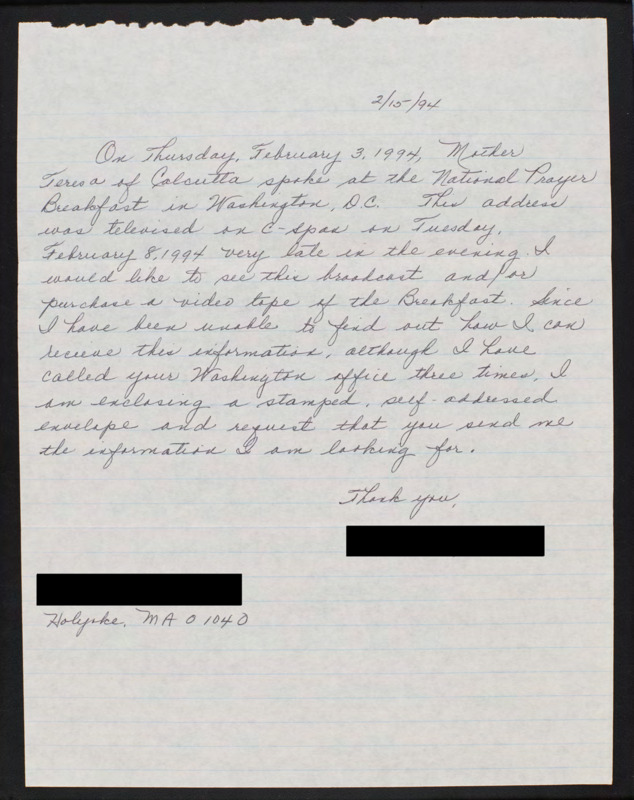 2/15/94
On Thursday, February 3, 1994, Mother
Teresa of Calcutta spoke at the National Prayer
Breakfast in Washington, D.C. This address
was televised on C-Span on Tuesday,
February 8, 1994 very late in the evening. I
would like to see this broadcast and/or
purchase a video tape of the Breakfast. Since
I have been unable to find out how I can
recieve this information, although I have
called your Washington office three times, I
am enclosing a stamped, self-addressed
envelope and request that you send me
the information I am looking for.
Thank you,
Holyoke, MA 01040